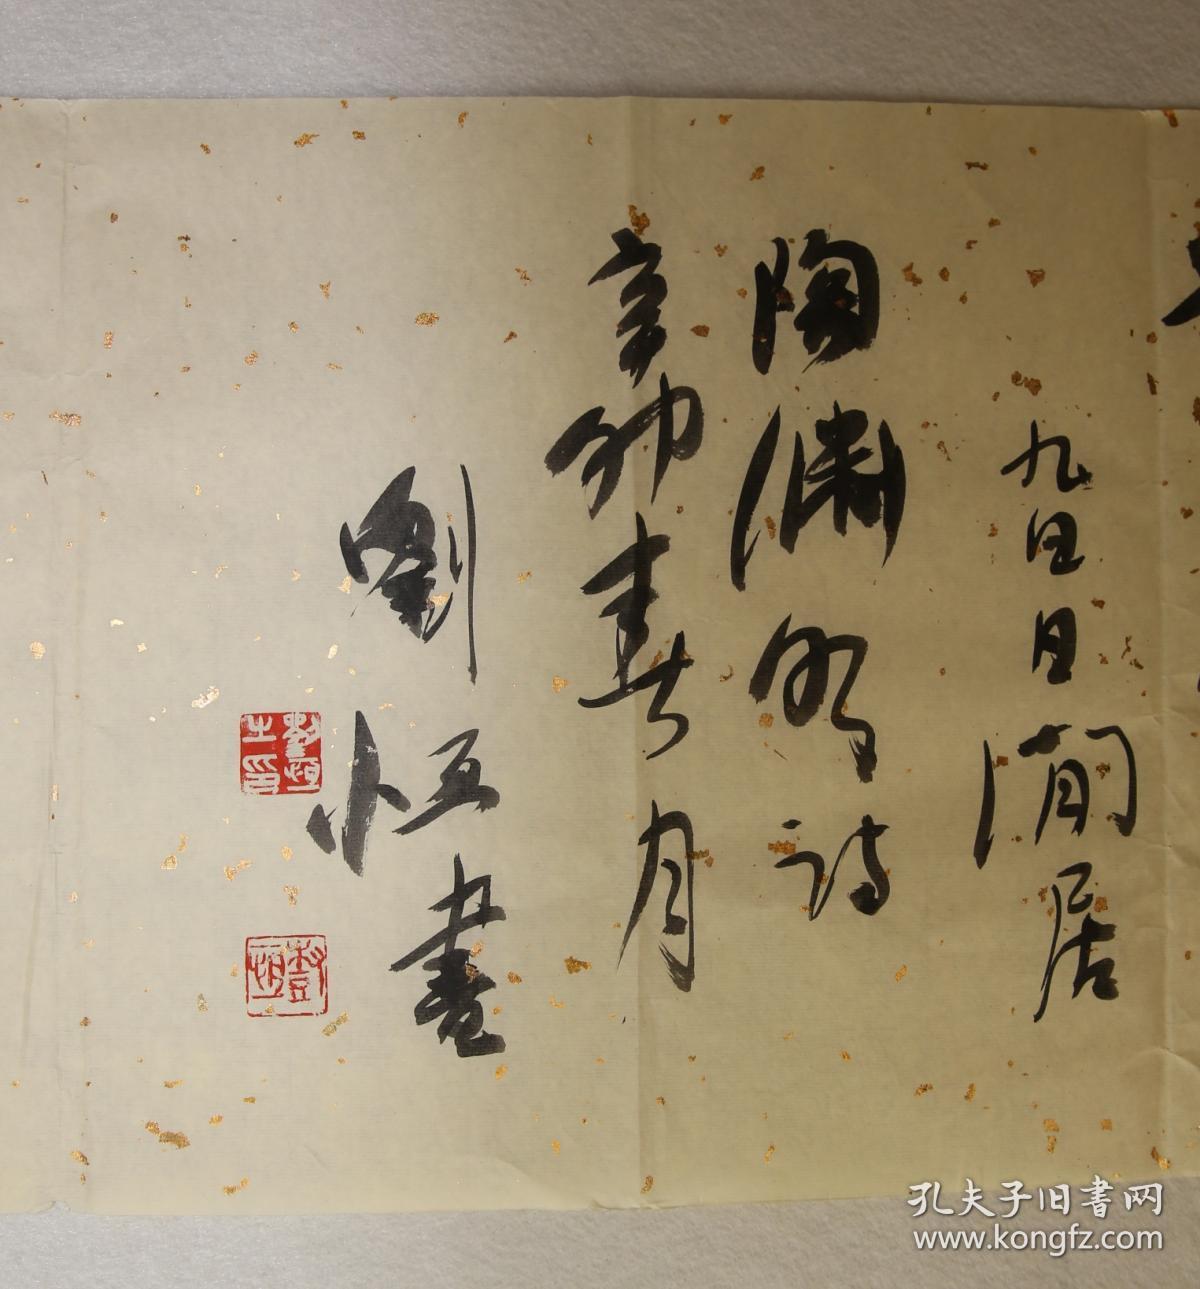 九日日閒居
陶淵明詩
辛卯春月
劉恒書
劉恒之印
劉恒
孔夫子旧書网
www.kongfz.com